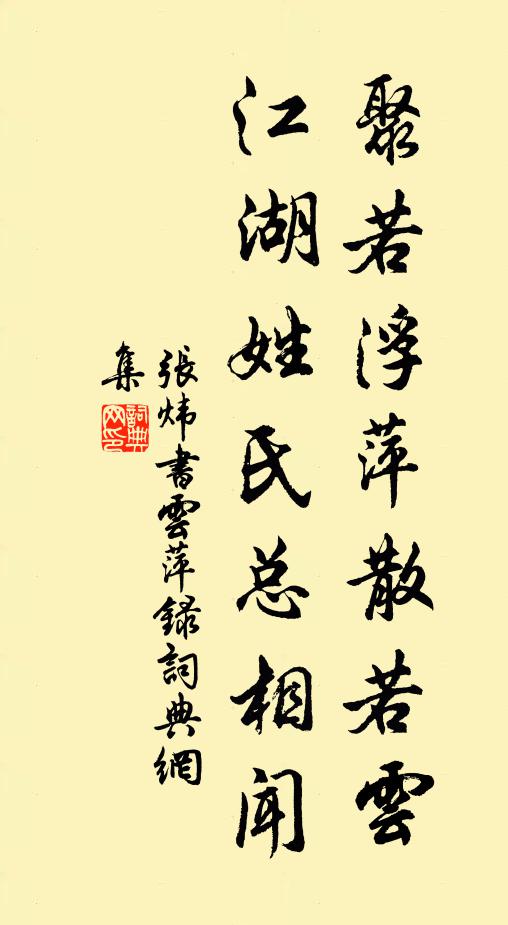 聚若浮萍散若雲
江湖姓氏总相闻
張炜書雲萍録詞典網
集
詞典网印